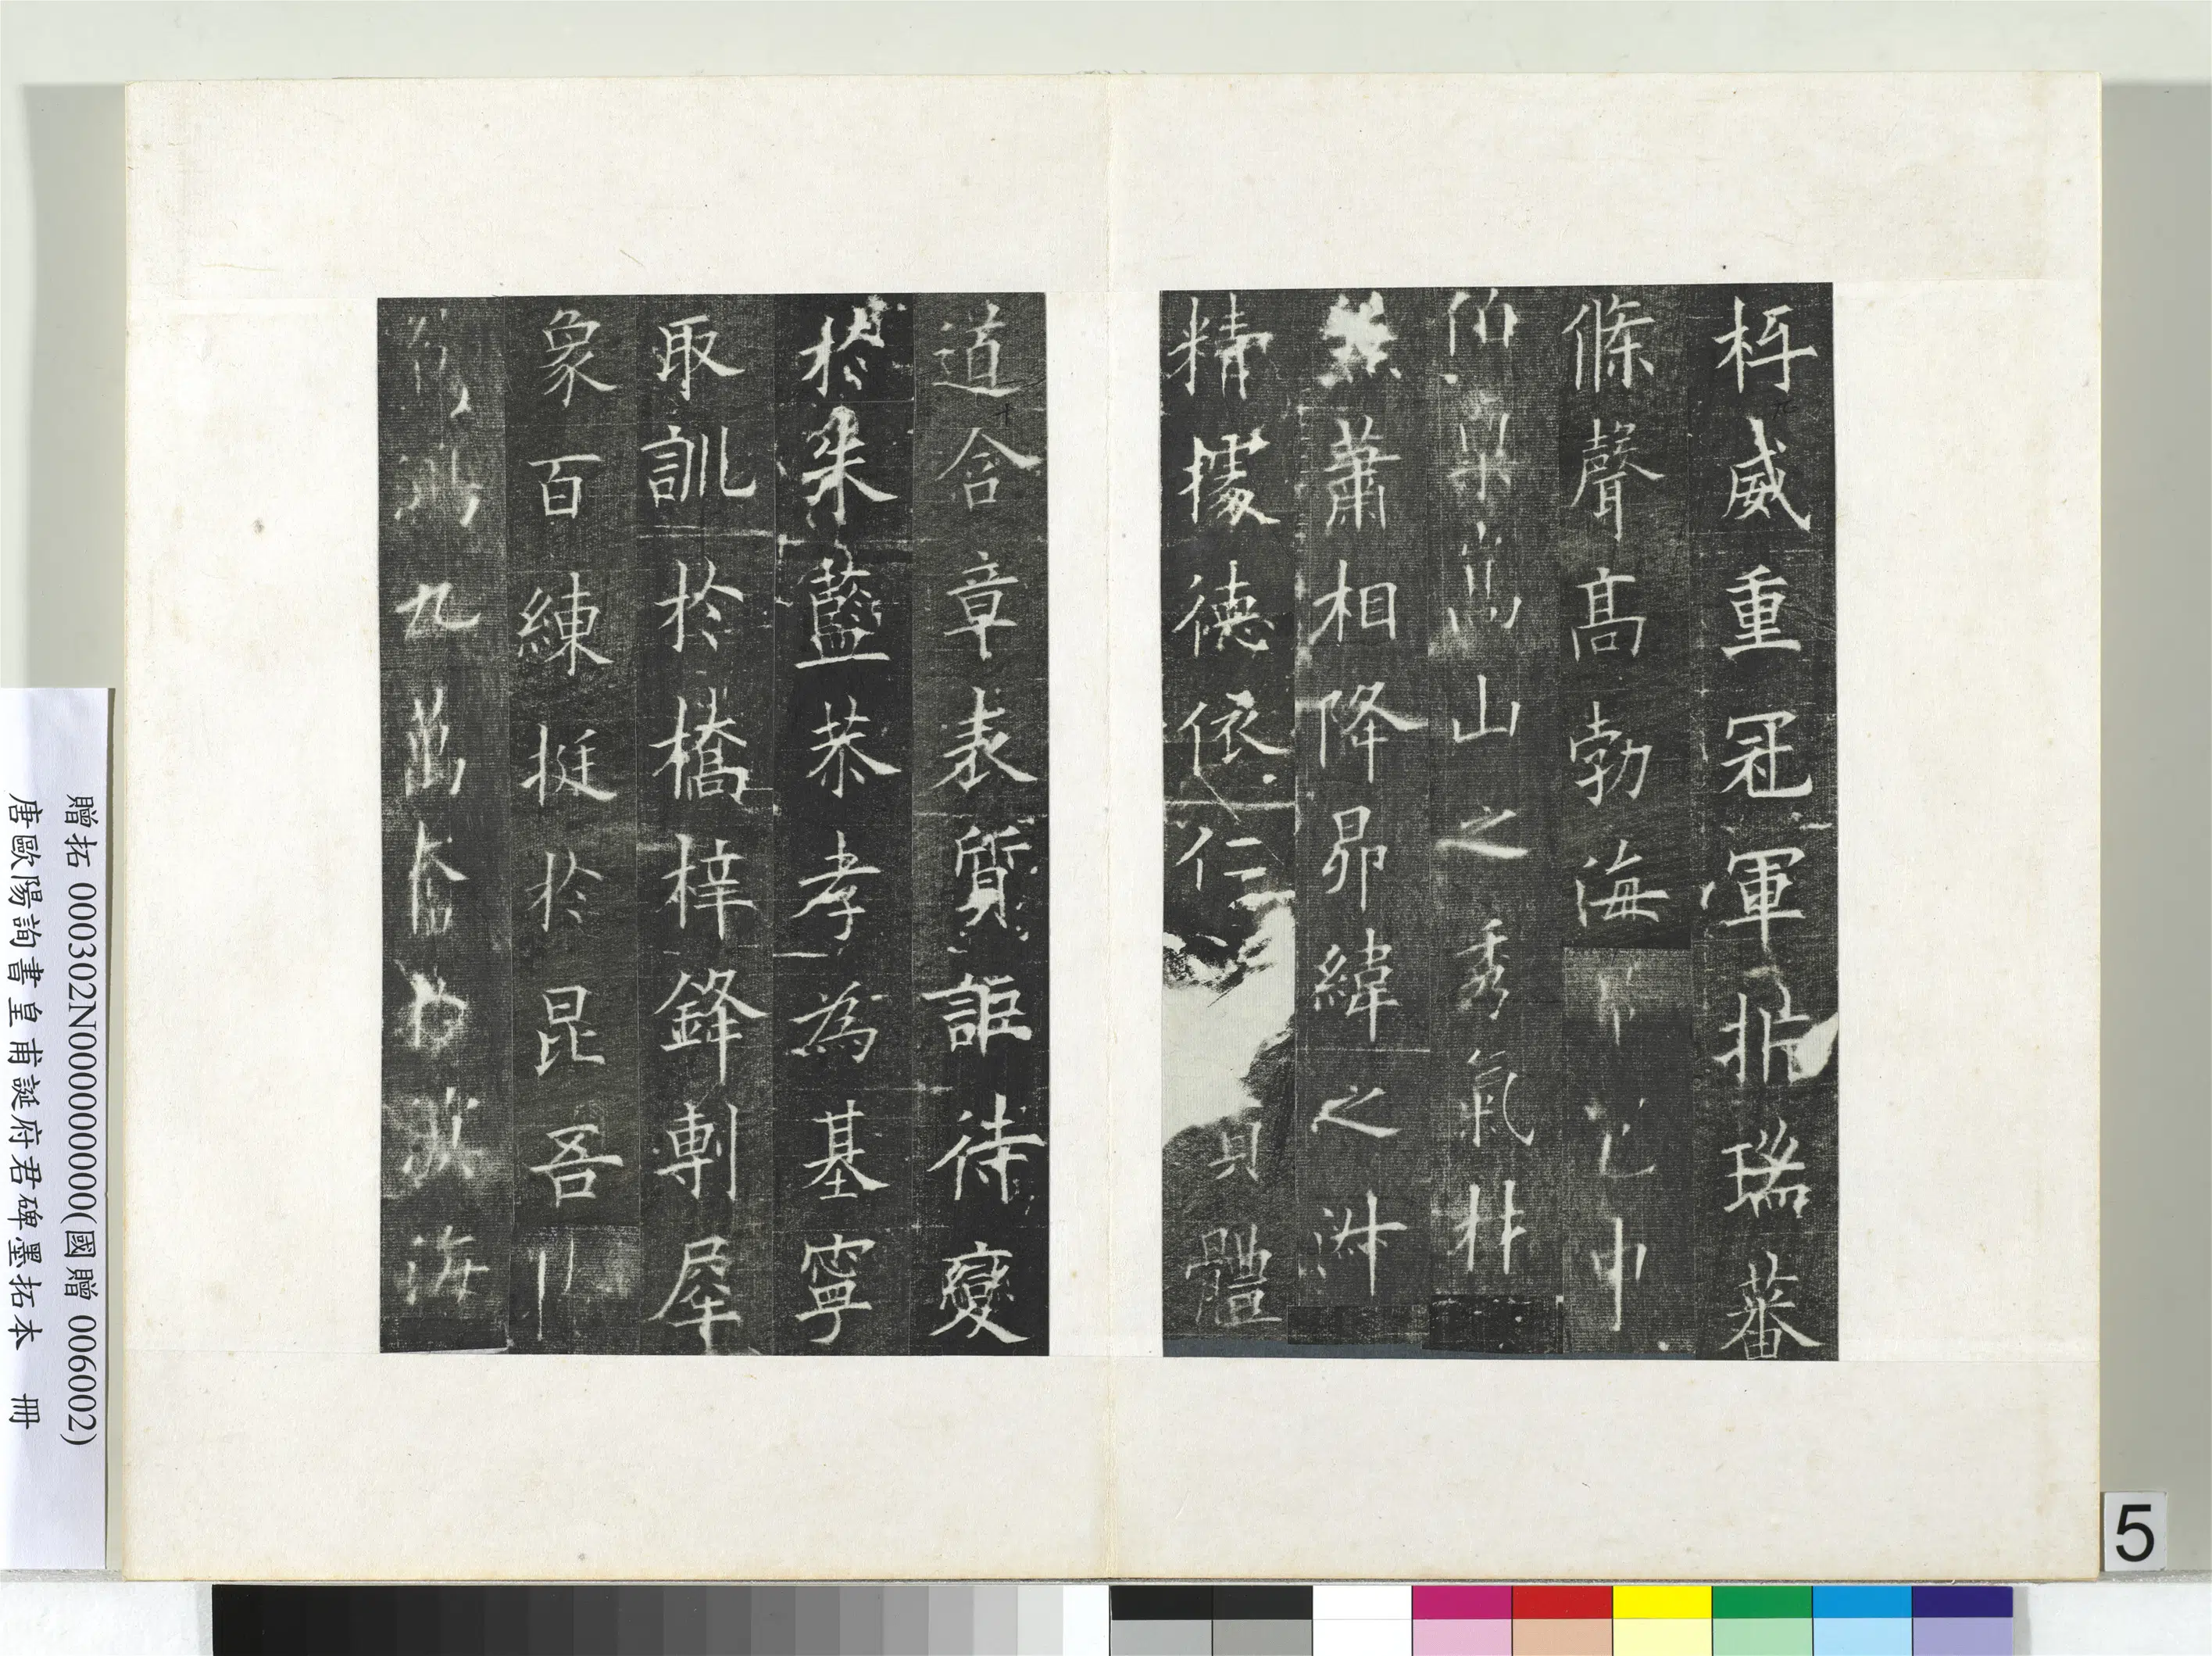 杼威重冠軍折瑞蕃
條聲高勃海
山之秀氣材
蕭相降昴緯之淋
精據德依仁具體
道含章表質詎待變
於朱藍恭孝為基寧
取訓於橋梓鋒剸犀
象百練挺於昆吾
九萬奮
海
贈拓 000302N000000000(國贈 006002)
唐歐陽詢書皇甫誕府君碑墨拓本 冊
5